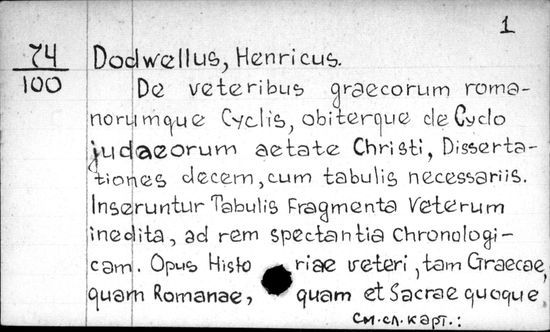 1
74
100
Dodwellus, Henricus.
De veteribus graecorum roma-
norumque Cyclis, obiterque de Cyclo
judaeorum aetate Christi, Disserta-
tiones decem, cum tabulis necessariis.
Inseruntur Tabulis Fragmenta Veterum
inedita, ad rem spectantia Chronologi-
cam. Opus Histo riae veteri, tam Graecae,
quam Romanae, quam et Sacrae quoque,
см. сл. карт.: